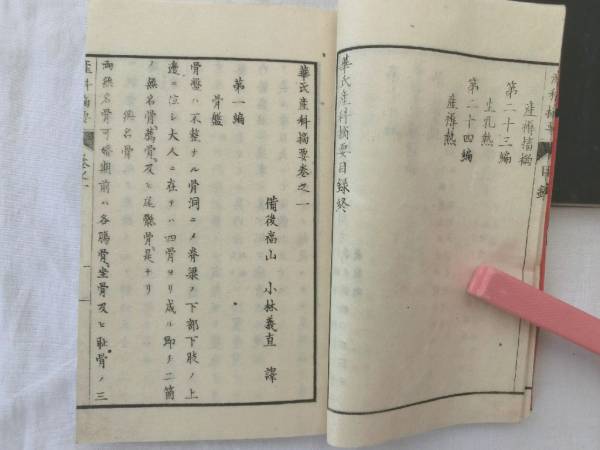 産褥搐搦
第二十三編
生乳熱
第二十四編
産褥熱
華氏産科摘要目録終
華氏産科摘要巻之一
備後福山 小林義直 譯
第一編
骨盤
骨盤ハ不整ナル骨洞ニメ脊梁ノ下部下肢ノ上
邊ニ位シ大人ニ在テハ四骨ヨリ成ル即チ二箇
ノ無名骨、薦骨、及ヒ尾骶骨、是ナリ
無名骨
両無名骨可婚期前ハ各腸骨、坐骨及ヒ耻骨ノ三
産科摘要
巻之一